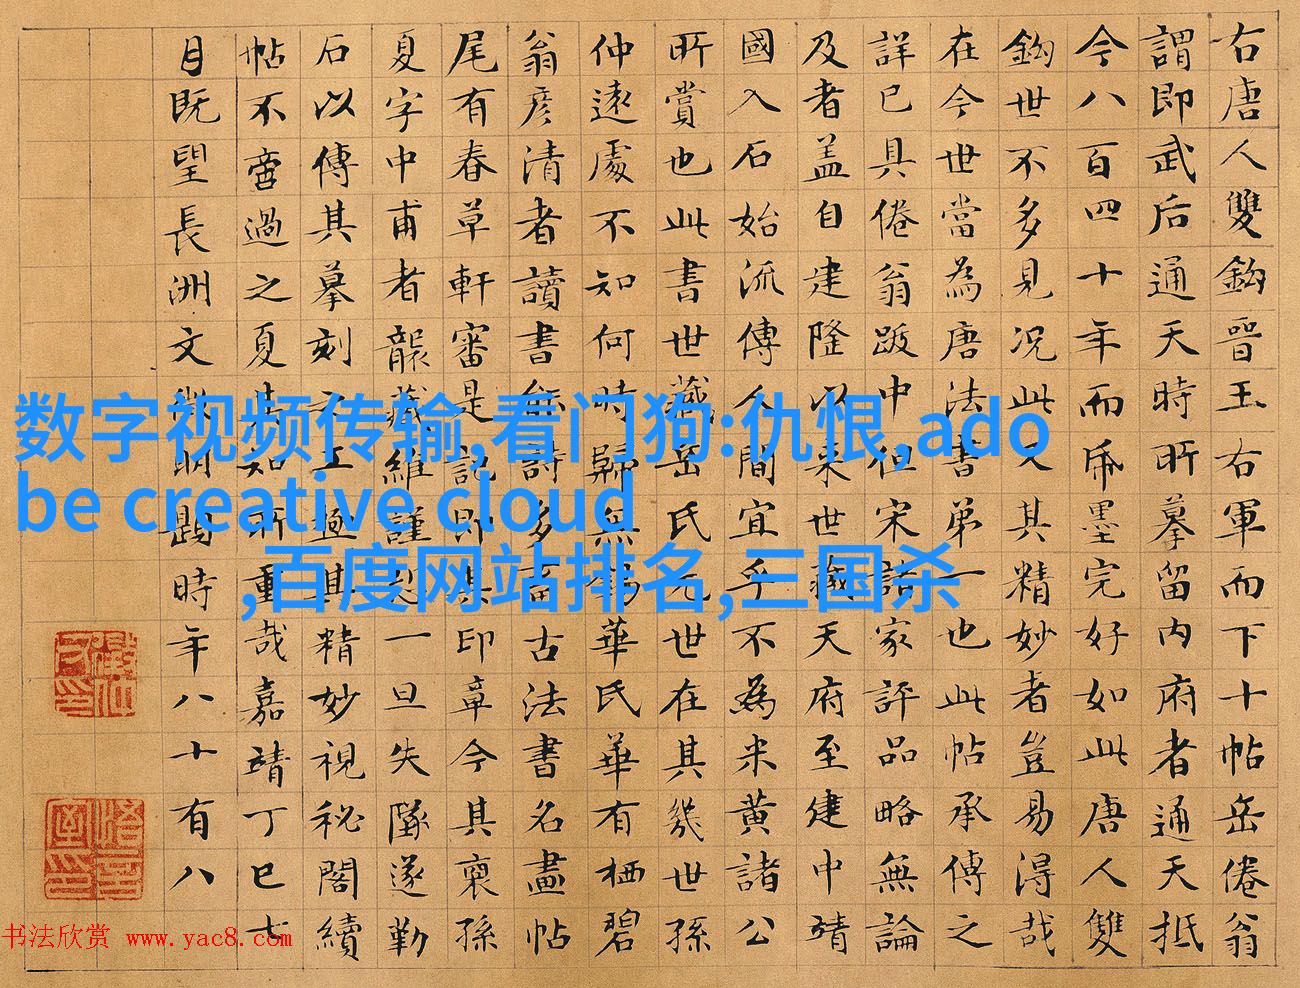 右唐人雙鈎晉王右軍而下十帖岳倦翁
謂即武后通天時所摹留內府者通天抵
今八百四十年而帋墨完好如此唐人雙
鈎世不多見况此又其精妙者豈易得哉
在今世當為唐法書第一也此帖承傳之
詳已具倦翁跋中但宋諸家評品略無論
及者盖自建隆以来世藏天府至建中靖
國入石始流傳人間宜乎不為米黃諸公
所賞也此書世藏岳氏元世在其幾世孫
仲遠處不知何時歸無錫華氏華有栖碧
翁彦清者讀書能詩多畜古法書名畫帖
尾有春草軒審是記即其印章今其裔孫
夏字中甫者襲藏維謹恐一旦失墜遂勒
石以傳其摹刻之工極其精妙視秘閣續
帖不啻過之夏其知所重哉嘉靖丁巳七
月既望長洲文徵明題時年八十有八
数字视频传输,看门狗:仇恨,ado
be creative cloud
,百度网站排名,三国杀
书法欣赏 www.yac8.com